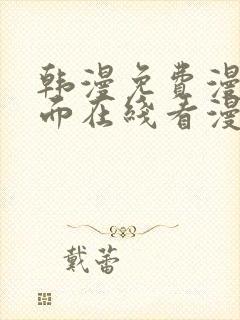 韩漫免费漫
而在线看漫
戴蕾